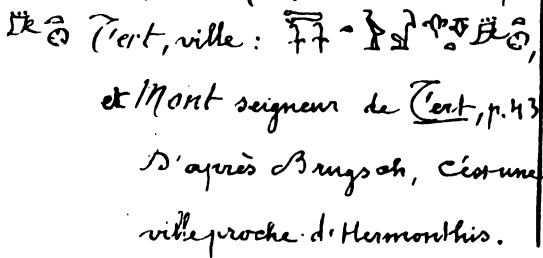 T'ert, ville :
et Mont seigneur de T'ert, p. 43
D'après Brugsch, c'est une
ville proche d'Hermonthis.